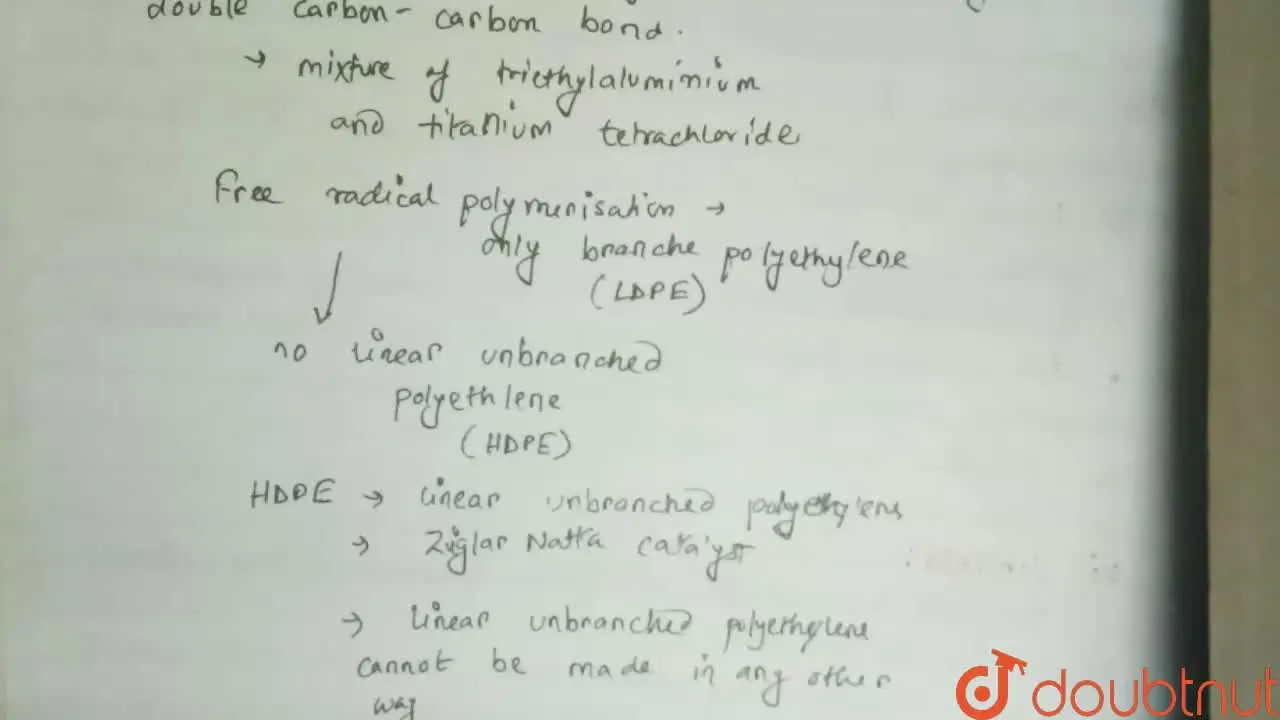 double carbon-carbon bond.
→ mixture of triethylaluminium
and titanium tetrachloride
Free radical polymerisation →
only branche polyethylene
(LDPE)
no linear unbranched
polyethlene
(HDPE)
HDPE → linear unbranched
→ Zuglar Natta catalyst
→ linear unbranched polyethylene
cannot be made in any other
way
doubtnut